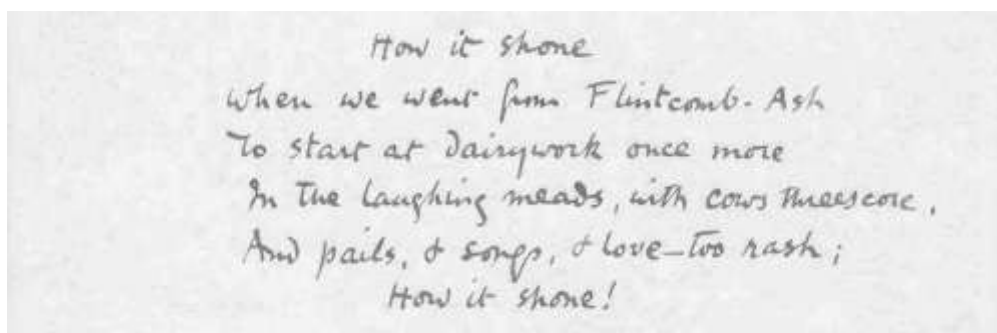 How it shone
When we went from Flintcomb-Ash
To start at Dairywork once more
In the laughing meads, with cows threescore,
And pails, & songs, & love—too rash;
How it shone!